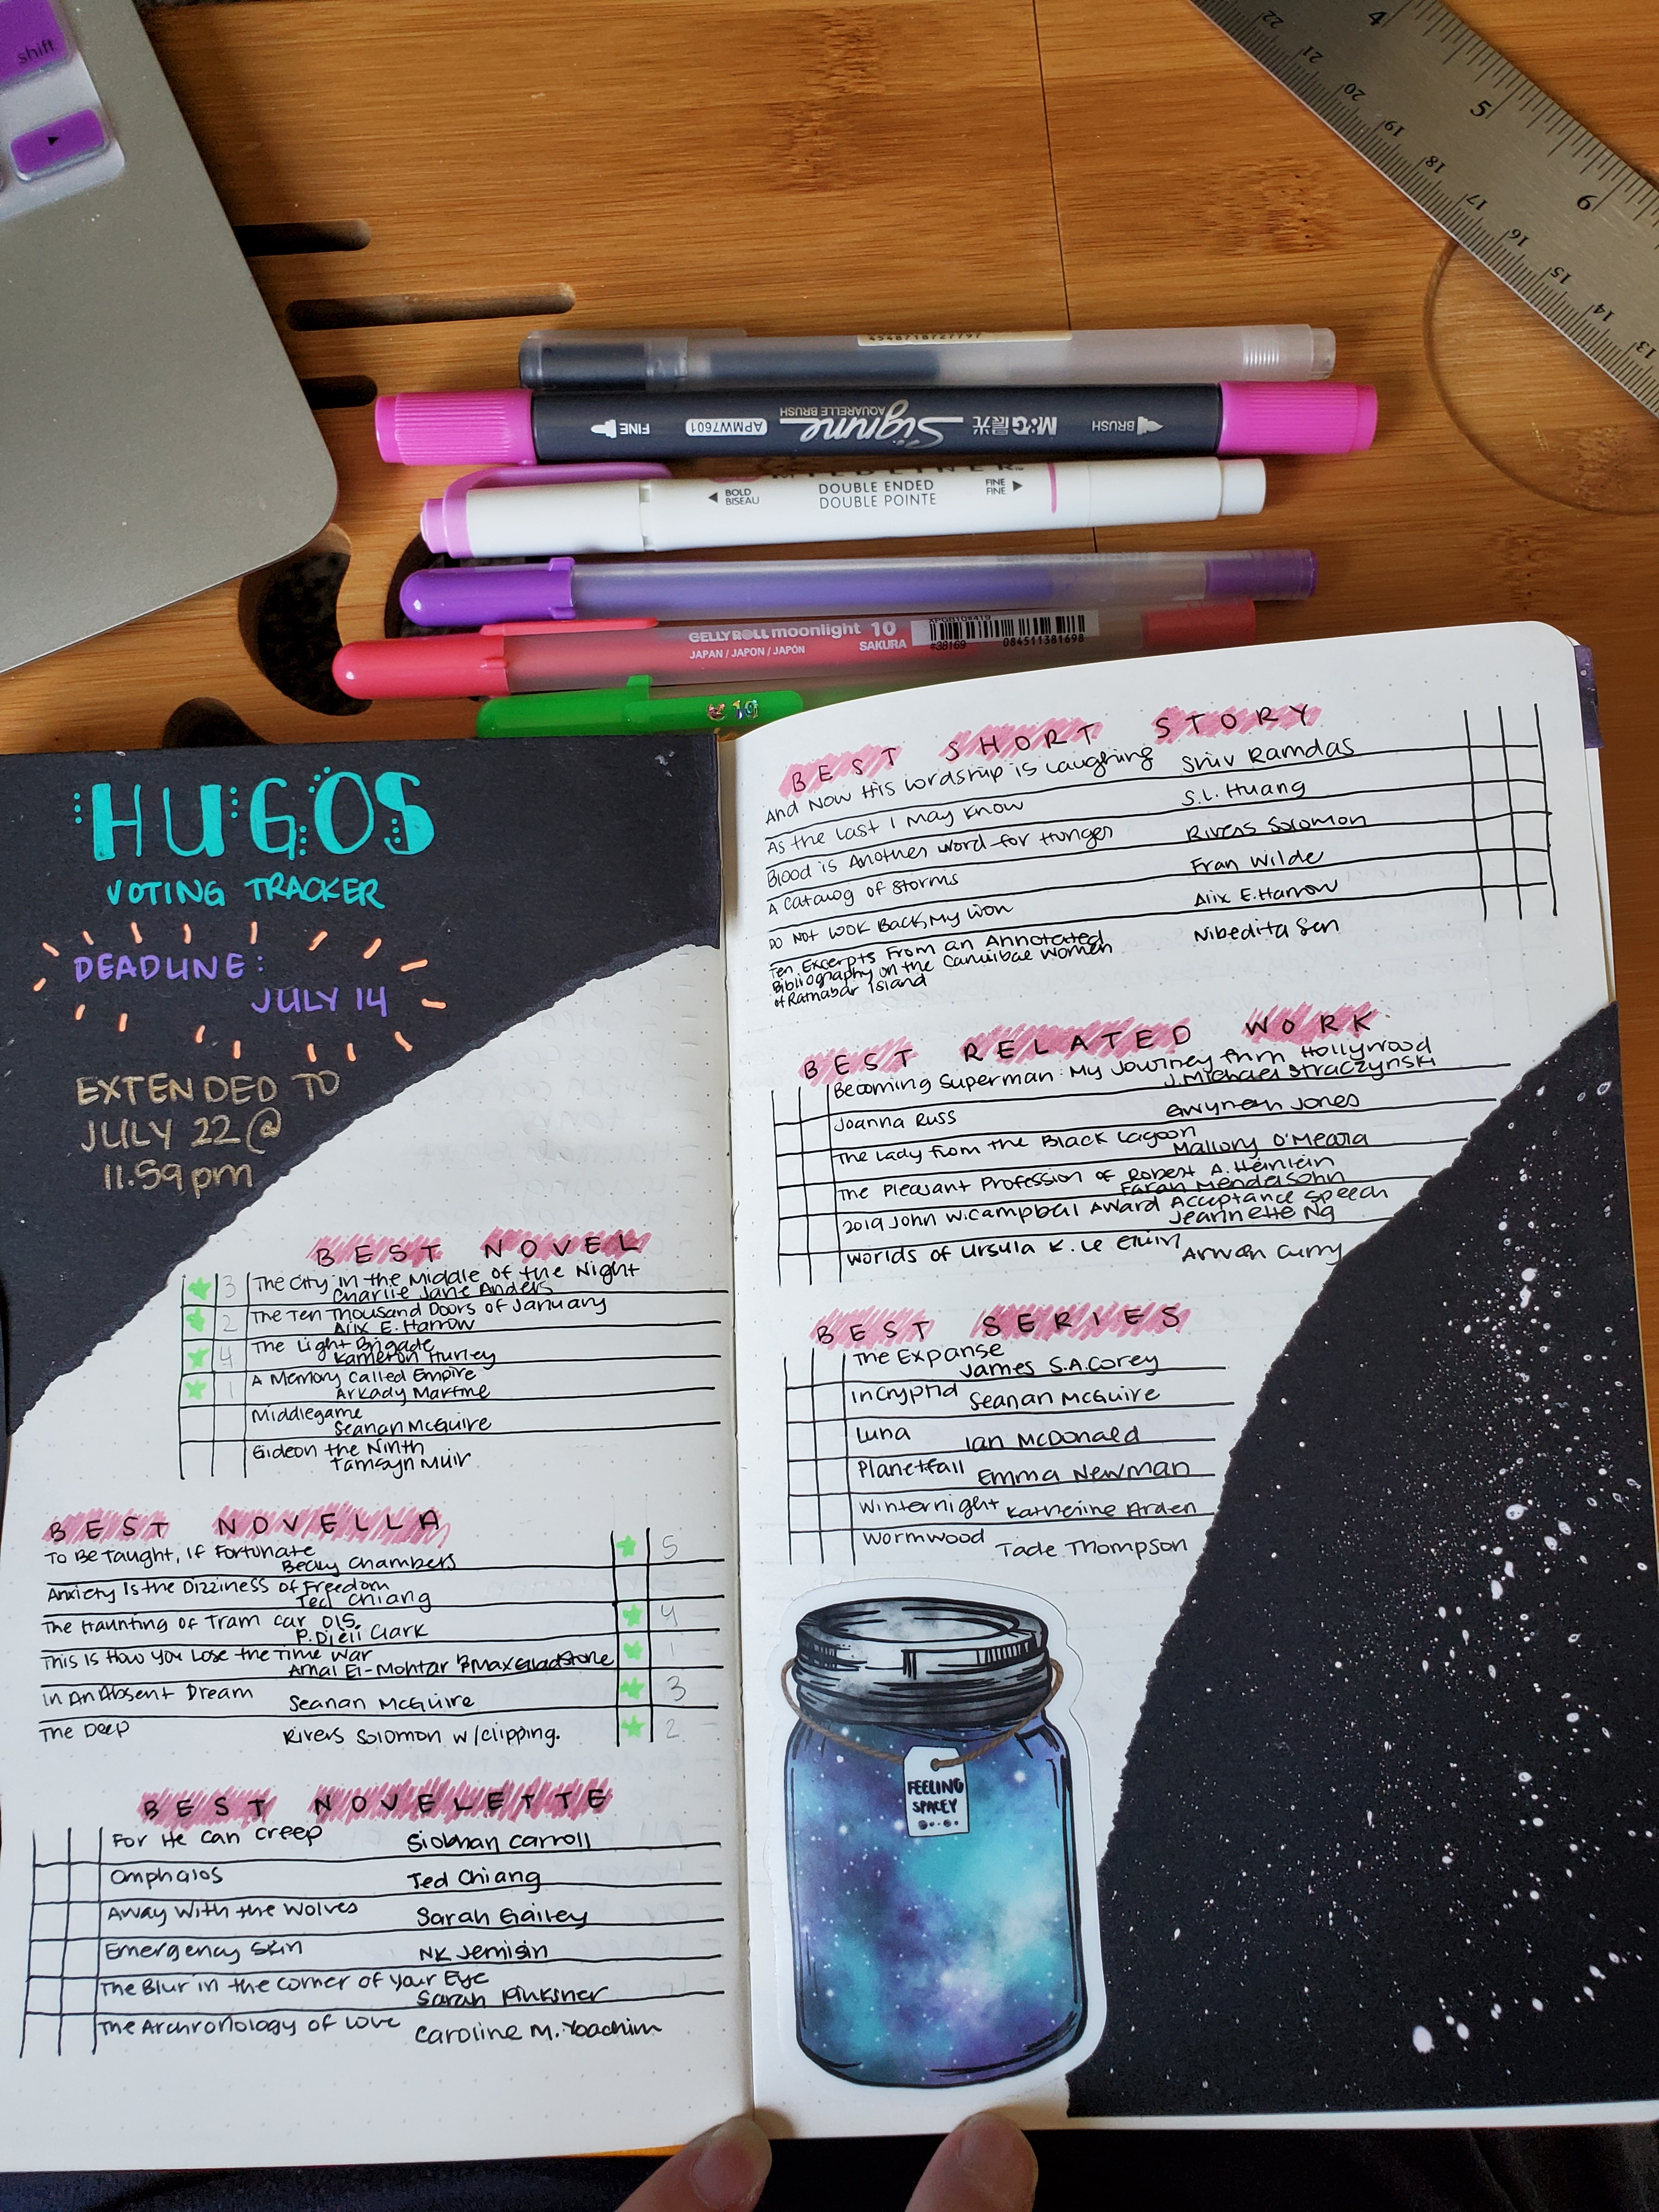 shift
4
5
6
22
21
20
19
18
17
16
15
14
13
4548718727797
BRUSH
M&G晨光
Signme
AQUARELLE BRUSH
APMW7601
FINE
BOLD
BISEAU
DOUBLE ENDED
DOUBLE POINTE
FINE
FINE
GELLY ROLL moonlight 10
JAPAN / JAPON / JAPÓN
SAKURA
XPGB10#419
#38169
084511381698
HUGOS
VOTING TRACKER
DEADLINE:
JULY 14
EXTENDED TO
JULY 22 @
11.59pm
BEST NOVEL
3 The City in the Middle of the Night
Charlie Jane Anders
2 The Ten Thousand Doors of January
Alix E. Harrow
4 The Light Brigade
Kameron Hurley
1 A Memory Called Empire
Arkady Martine
Middlegame
Seanan McGuire
Gideon the Ninth
Tamsyn Muir
BEST NOVELLA
To Be Taught, If Fortunate
Becky Chambers 5
Anxiety Is the Dizziness of Freedom
Ted Chiang
The Haunting of Tram Car 015.
P. Djeli Clark 4
This Is How You Lose the Time War
Amal El-Mohtar & Max Gladstone 1
In An Absent Dream Seanan McGuire 3
The Deep Rivers Solomon w/clipping. 2
BEST NOVELETTE
For He Can Creep Siobhan Carroll
Omphalos Ted Chiang
Away With the Wolves Sarah Gailey
Emergency Skin NK Jemisin
The Blur in the Corner of Your Eye
Sarah Pinksner
The Archronology of Love Caroline M. Yoachim
BEST SHORT STORY
And Now His Lordship is Laughing Shiv Ramdas
As the Last I May Know S.L. Huang
Blood is Another Word for Hunger Rivers Solomon
A Catalog of Storms Fran Wilde
Do Not Look Back, My Lion Alix E. Harrow
Ten Excerpts From an Annotated Nibedita Sen
Bibliography on the Cannibal Women
of Ratnabar Island
BEST RELATED WORK
Becoming Superman: My Journey from Hollywood
J. Michael Straczynski
Joanna Russ Gwyneth Jones
The Lady from the Black Lagoon
Mallory O'Meara
The Pleasant Profession of Robert A. Heinlein
Farah Mendelsohn
2019 John W. Campbell Award Acceptance Speech
Jeannette Ng
Worlds of Ursula K. Le Guin Arwen Curry
BEST SERIES
The Expanse
James S.A. Corey
InCryptid Seanan McGuire
Luna Ian McDonald
Planetfall Emma Newman
Winternight Katherine Arden
Wormwood Tade Thompson
FEELING
SPACEY